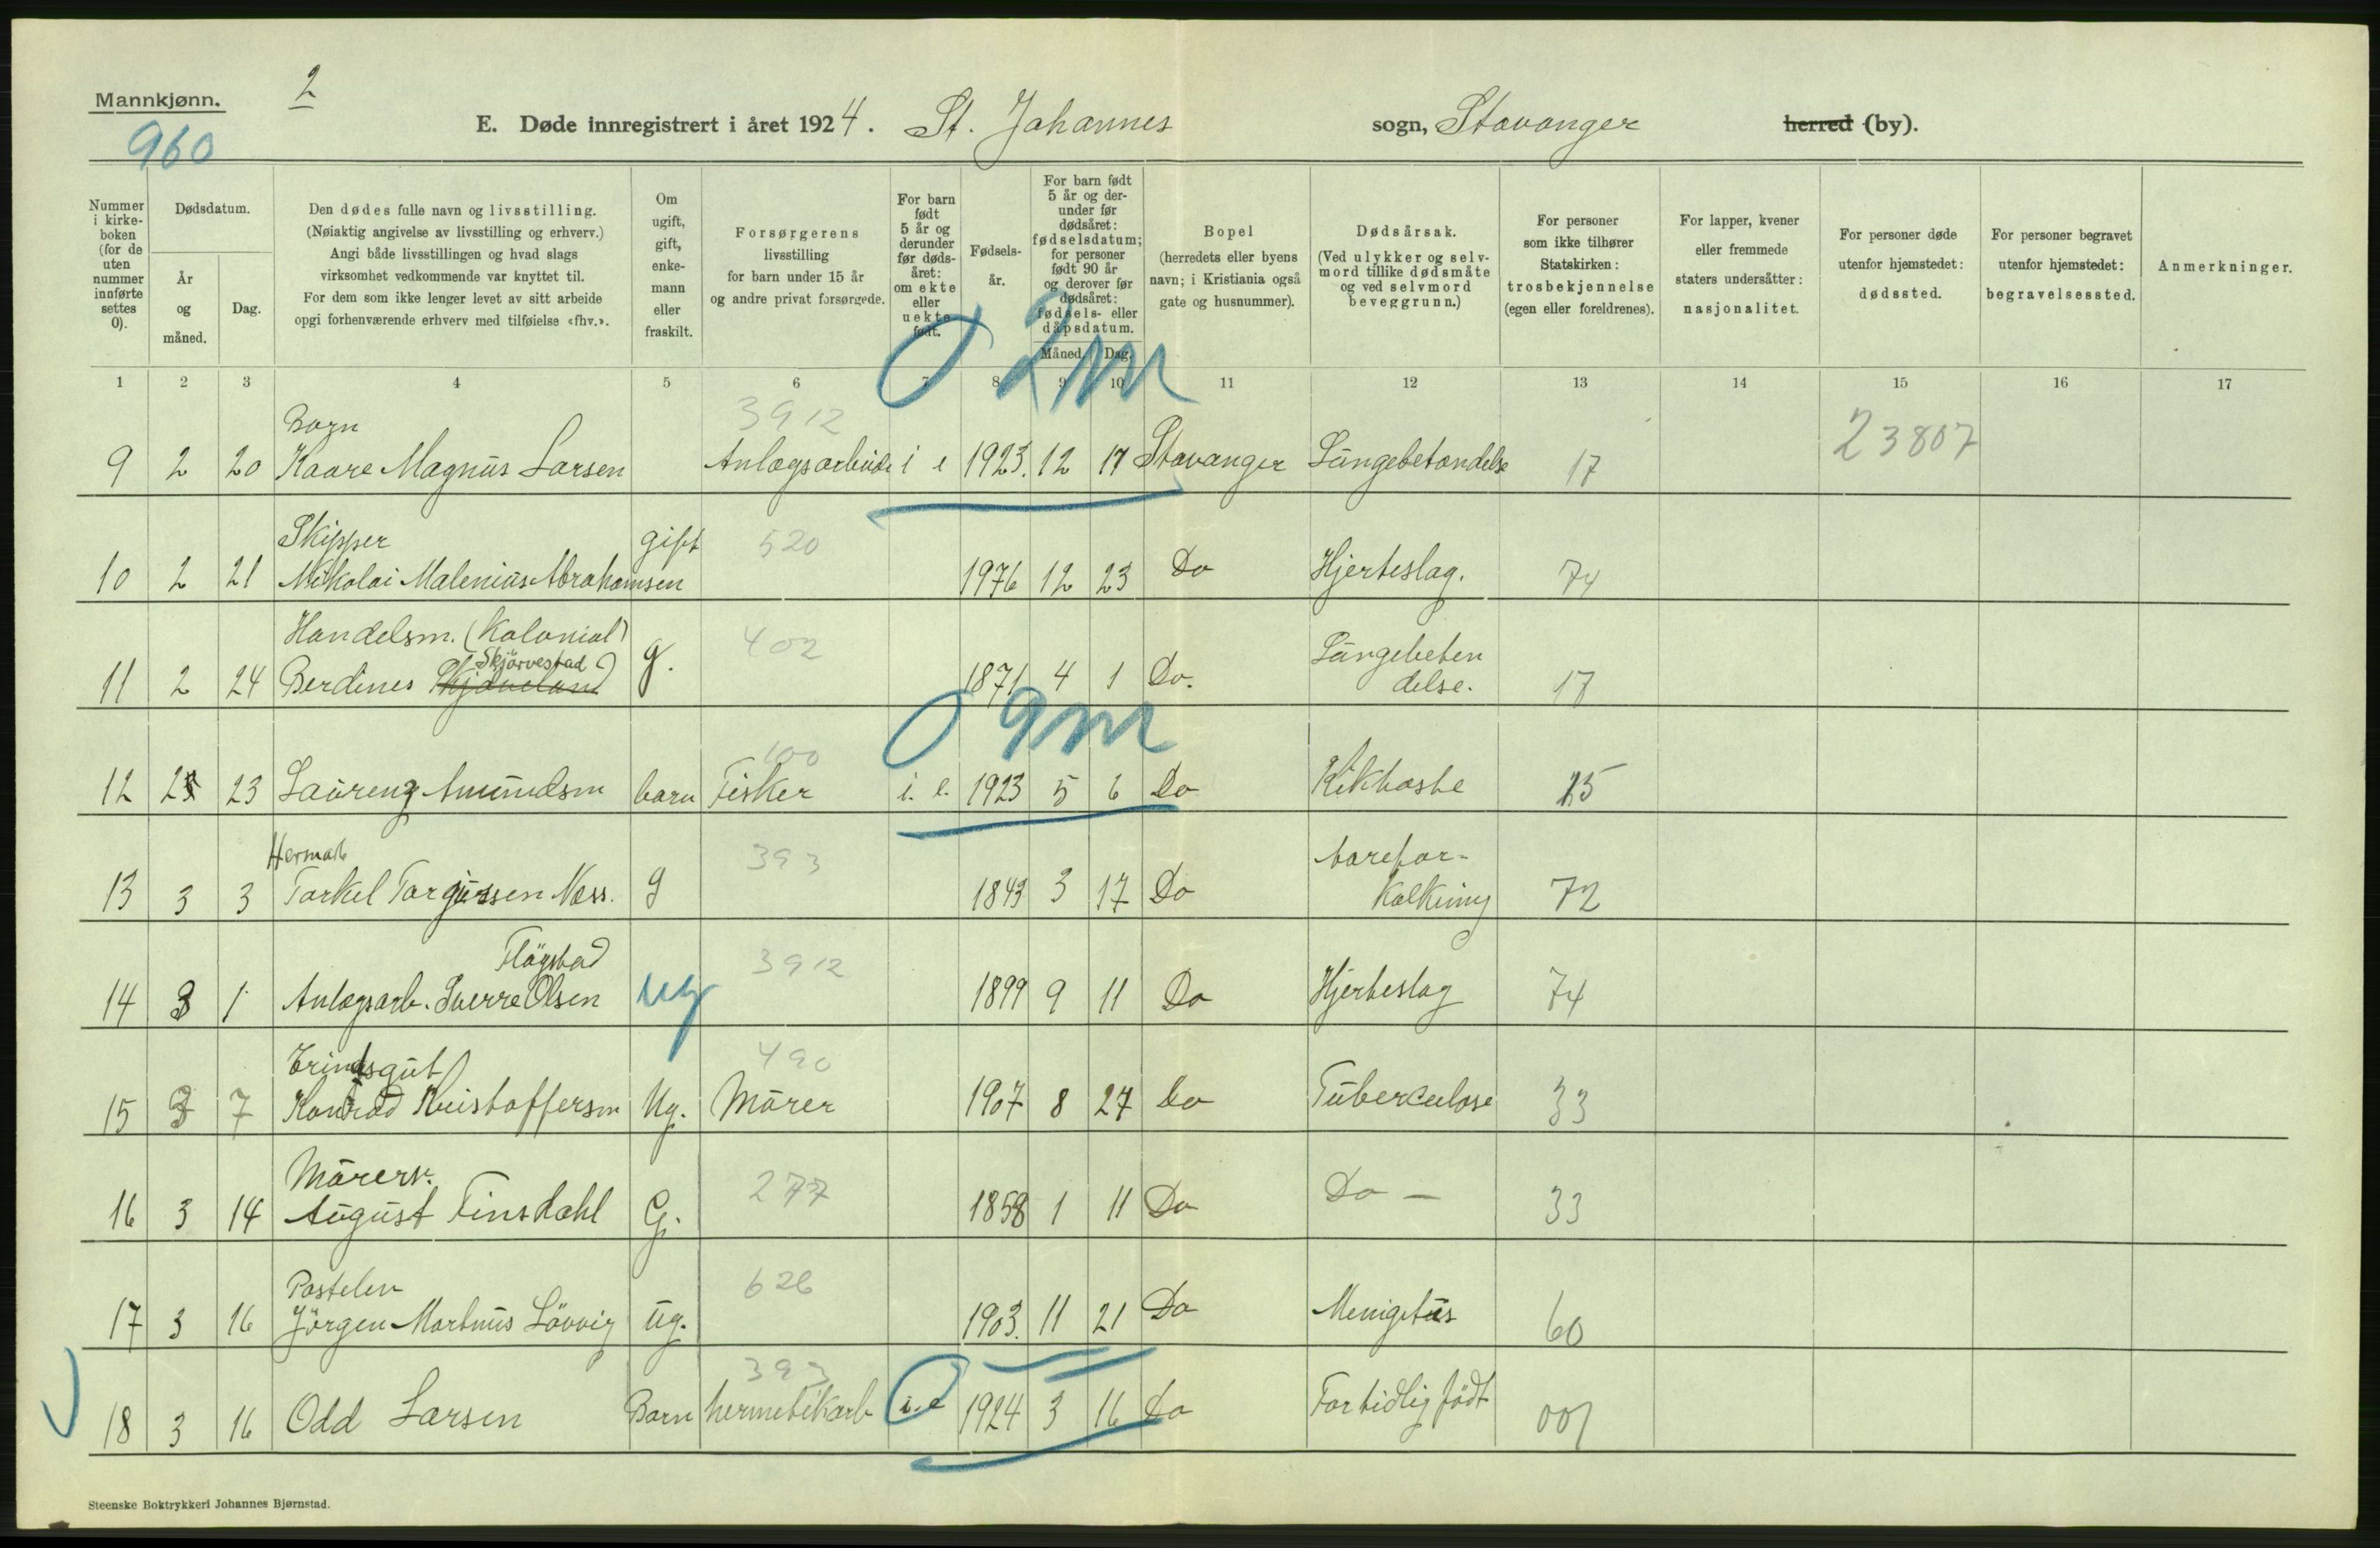 Mannkjønn.
2
960
E. Døde innregistrert i året 1924. St. Johannes sogn, Stavanger herred (by).
Nummer i kirke-boken (for de uten nummer innførte settes 0).
Dødsdatum.
År og måned.
Dag.
Den dødes fulle navn og livsstilling.
(Nøiaktig angivelse av livsstilling og erhverv.)
Angi både livsstillingen og hvad slags
virksomhet vedkommende var knyttet til.
For dem som ikke lenger levet av sitt arbeide
opgi forhenværende erhverv med tilføielse «fhv.».
Om ugift, gift, enke-mann eller fraskilt.
Forsørgerens
livsstilling
for barn under 15 år
og andre privat forsørgede.
For barn født 5 år og derunder før døds-året: om ekte eller uekte født.
Fødsels-år.
For barn født 5 år og der-under før dødsåret: fødselsdatum; for personer født 90 år og derover før dødsåret: fødsels- eller dåpsdatum.
Måned. Dag.
Bopel
(herredets eller byens
navn; i Kristiania også
gate og husnummer).
Dødsårsak.
(Ved ulykker og selv-
mord tillike dødsmåte
og ved selvmord
beveggrunn.)
For personer
som ikke tilhører
Statskirken:
trosbekjennelse
(egen eller foreldrenes).
For lapper, kvener
eller fremmede
staters undersåtter:
nasjonalitet.
For personer døde
utenfor hjemstedet:
dødssted.
For personer begravet
utenfor hjemstedet:
begravelsessted.
Anmerkninger.
1 2 3 4 5 6 7 8 9 10 11 12 13 14 15 16 17
0 2m
Barn 3912
9 2 20 Kaare Magnus Larsen Anlægsarbeide i e 1923. 12 17 Stavanger Lungebetændelse 17 23807
Skipper gift 520
10 2 21 Nikolai Malenius Abrahamsen 1976 12 23 Do Hjerteslag. 74
Handelsm. (Kolonial) 402
Skjørvestad
11 2 24 Berdines Skjøveland g. 1871 4 1 Do. Lungebeten
delse. 17
0 9m
100
12 2 23 Laurenz Amundsen barn Fisker i. e. 1923 5 6 Do Kikhoste 15
Hermat 393
13 3 3 Torkel Torgjussen Næss. g 1843 3 17 Do Aarefor-
kalkning 72
Fløgstad 3912
14 3 1 Anlægsarb. Sverre Olsen ug 1899 9 11 Do Hjerteslag 74
Erindsgut 490
15 3 7 Konrad Kristoffersen Ug. Murer 1907 8 27 Do Tuberculose 33
Murerv. 277
16 3 14 August Finsdahl G. 1858 1 11 Do Do — 33
Postelev 626
17 3 16 Jörgen Martnus Lövvig ug. 1903. 11 21 Do Menigitus 60
393
18 3 16 Odd Larsen Barn hermetikarb i. e 1924 3 16 Do For tidlig født 001
Steenske Boktrykkeri Johannes Bjørnstad.